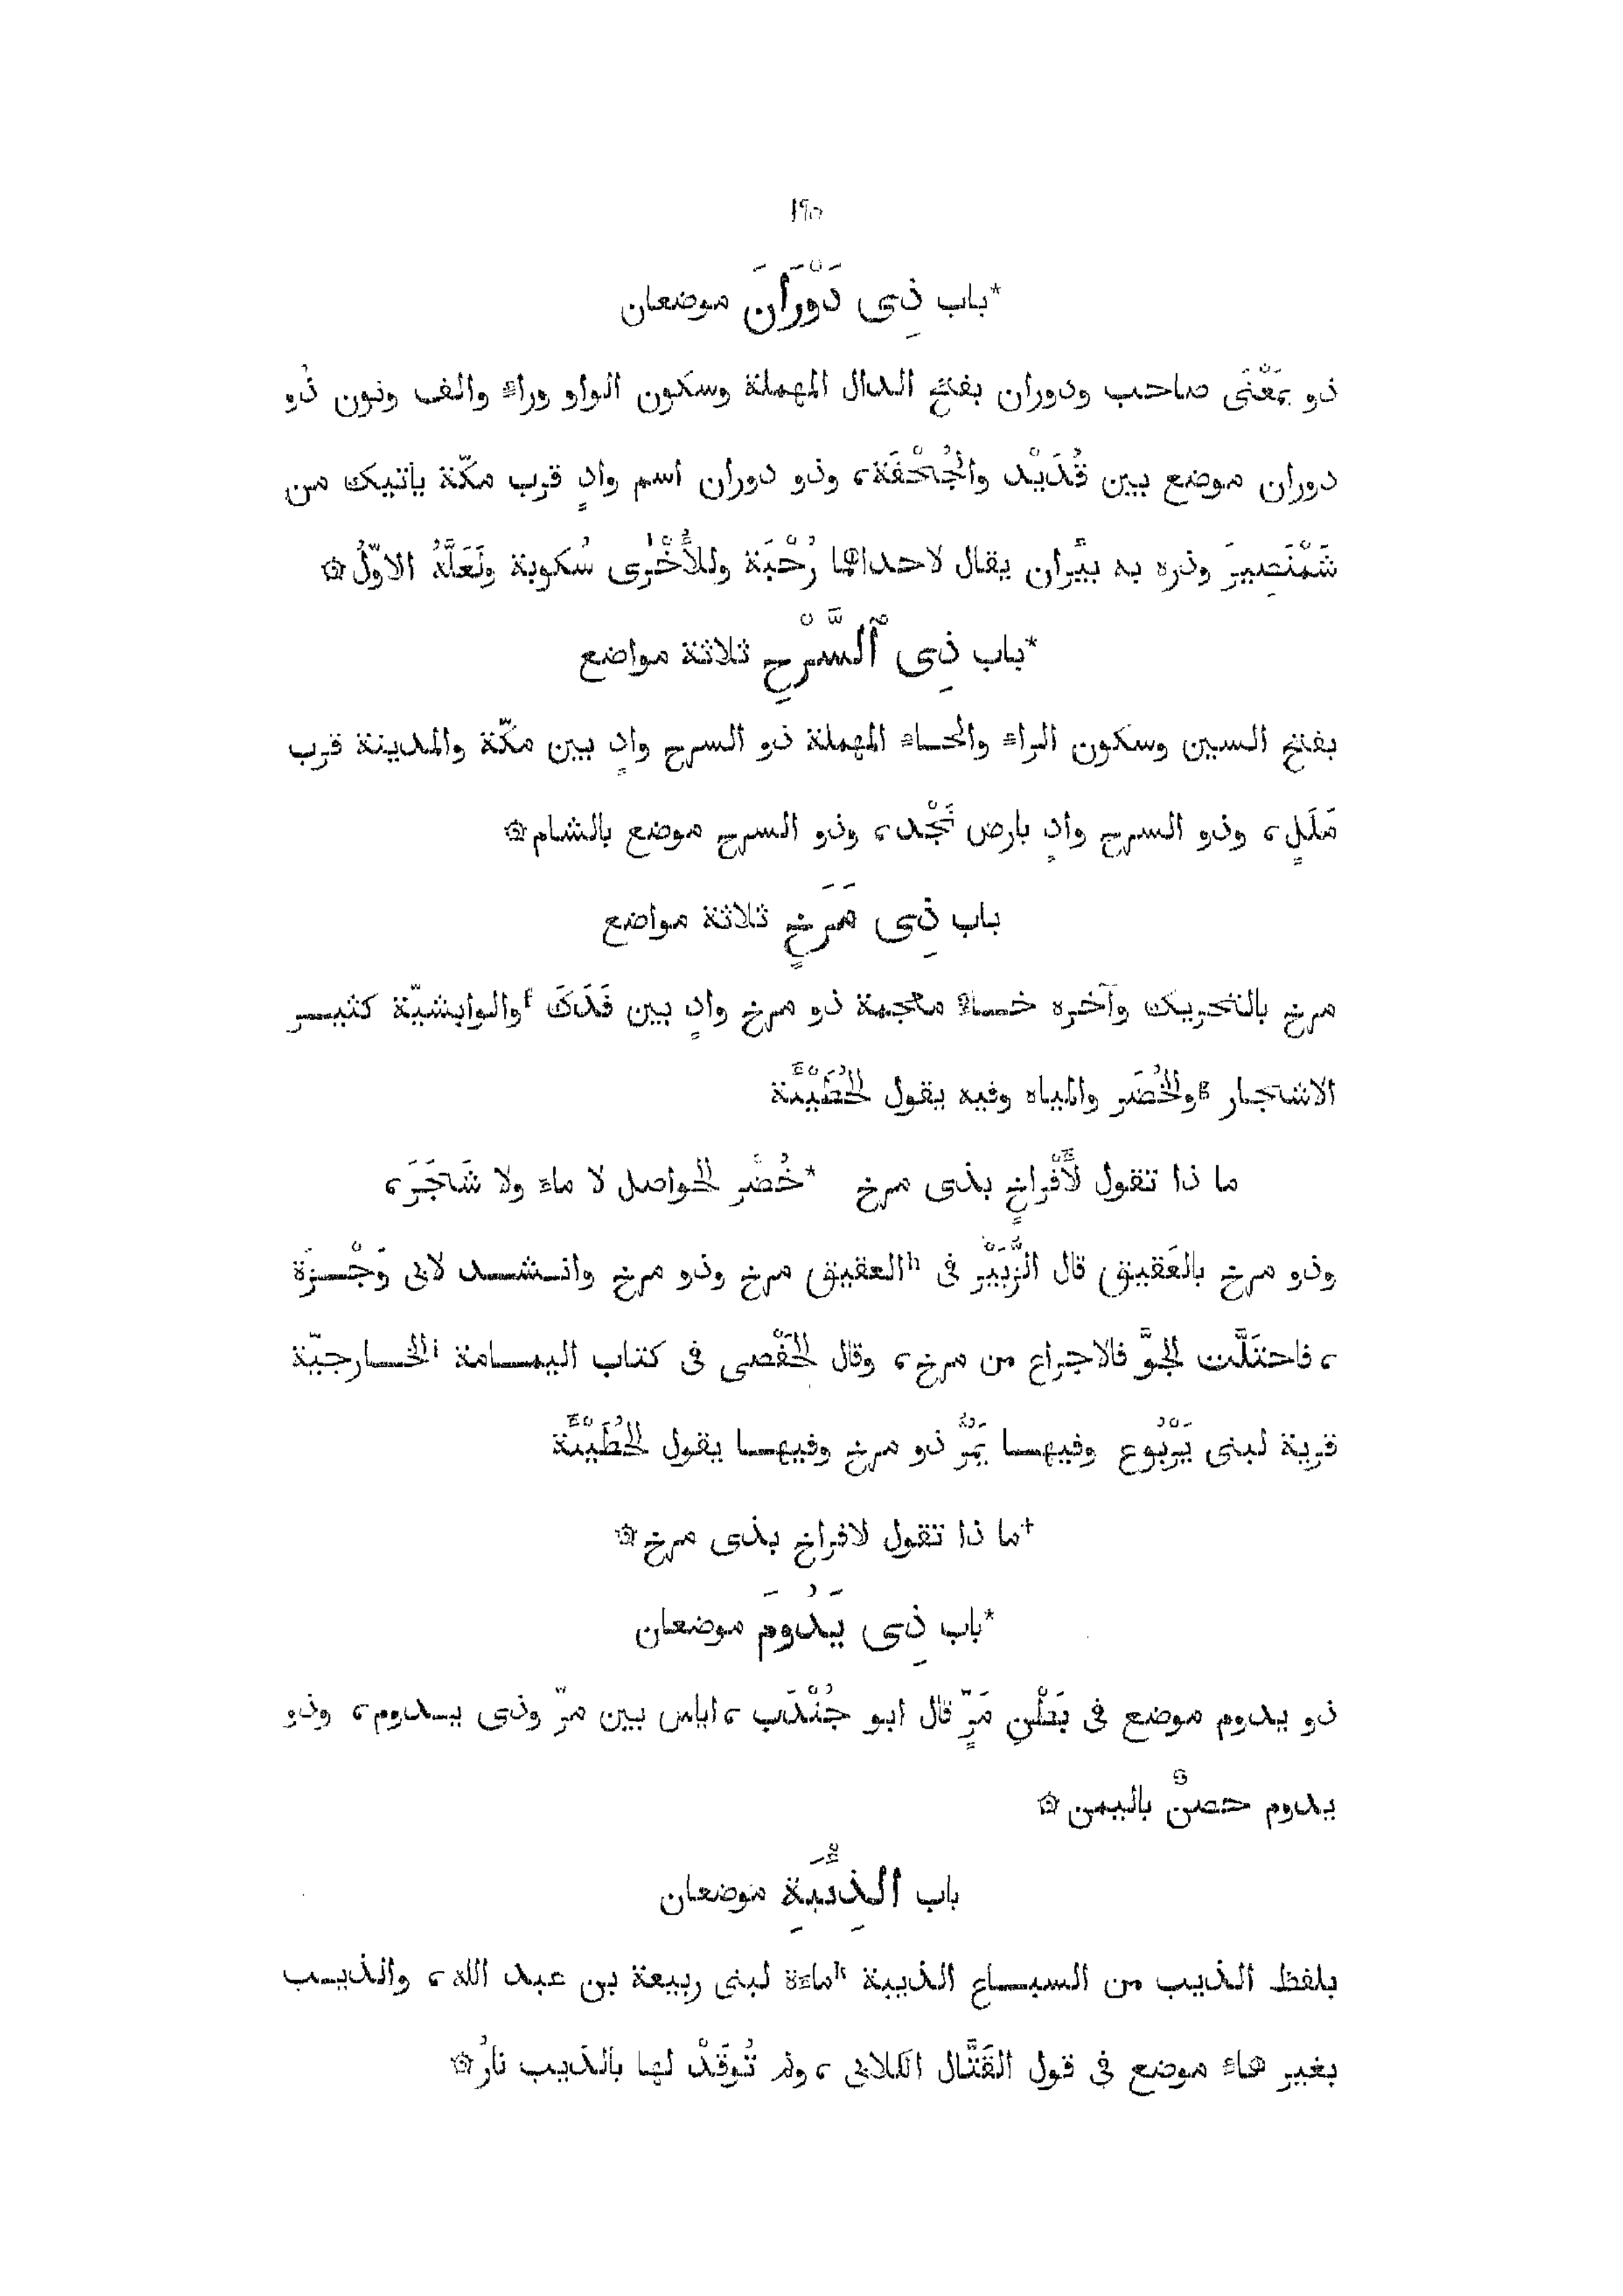 ١٩٥
*باب ذِى دَوْرَانَ موضعان
ذو بمَعْنَى صاحب ودوران بفتح الدال المهملة وسكون الواو وراء والف ونون ذُو
دوران موضع بين قُدَيْد والجُحْفَة، وذو دوران اسم وادٍ قرب مكّة ياتيك من
شَمْنَصِيرَ وذره به بئران يقال لاحداهما رُحْبَة وللأُخْرى سُكوبة ولَعَلَّهُ الاوّلُ ۞
*باب ذِى ٱلسَّرْحِ ثلاثة مواضع
بفتح السين وسكون الراء والحاء المهملة ذو السرح وادٍ بين مكّة والمدينة قرب
مَلَلٍ، وذو السرح وادٍ بارض نَجْد، وذو السرح موضع بالشام ۞
باب ذِى مَرَخٍ ثلاثة مواضع
مرخ بالتحريك وآخره خاء معجمة ذو مرخ وادٍ بين فَدَكَ fوالوابشيّة كثير
الاشجار gوالخُضَر والمياه وفيه يقول الحُطَيْئَة
ما ذا تقول لأَفْراخٍ بذى مرخ *خُضْر الحواصل لا ماء ولا شَجَرَ،
وذو مرخ بالعَقيق قال الزُّبَيْر فى hالعقيق مرخ وذو مرخ وانشد لابى وَجْزَة
، فاحتَلَّت الجوَّ فالاجراع من مرخ، وقال الحَفْصى فى كتاب اليمامة iالخارجيّة
قرية لبنى يَرْبُوع وفيها يَمُرُّ ذو مرخ وفيها يقول الحُطَيْئَة
†ما ذا تقول لافراخ بذى مرخ ۞
*باب ذِى يَدُومَ موضعان
ذو يدوم موضع فى بَطْنِ مَرٍّ قال ابو جُنْدَب ، اياس بين مرّ وذى يدوم، وذو
يدوم حصنٌ باليمن ۞
باب الذِئَبَةِ موضعان
بلفظ الذيب من السباع الذيبة kماءة لبنى ربيعة بن عبد الله، والذيب
بغير هاء موضع فى قول القَتَّال الكلابى ، ولم تُوقَدْ لها بالذيب نارُ ۞